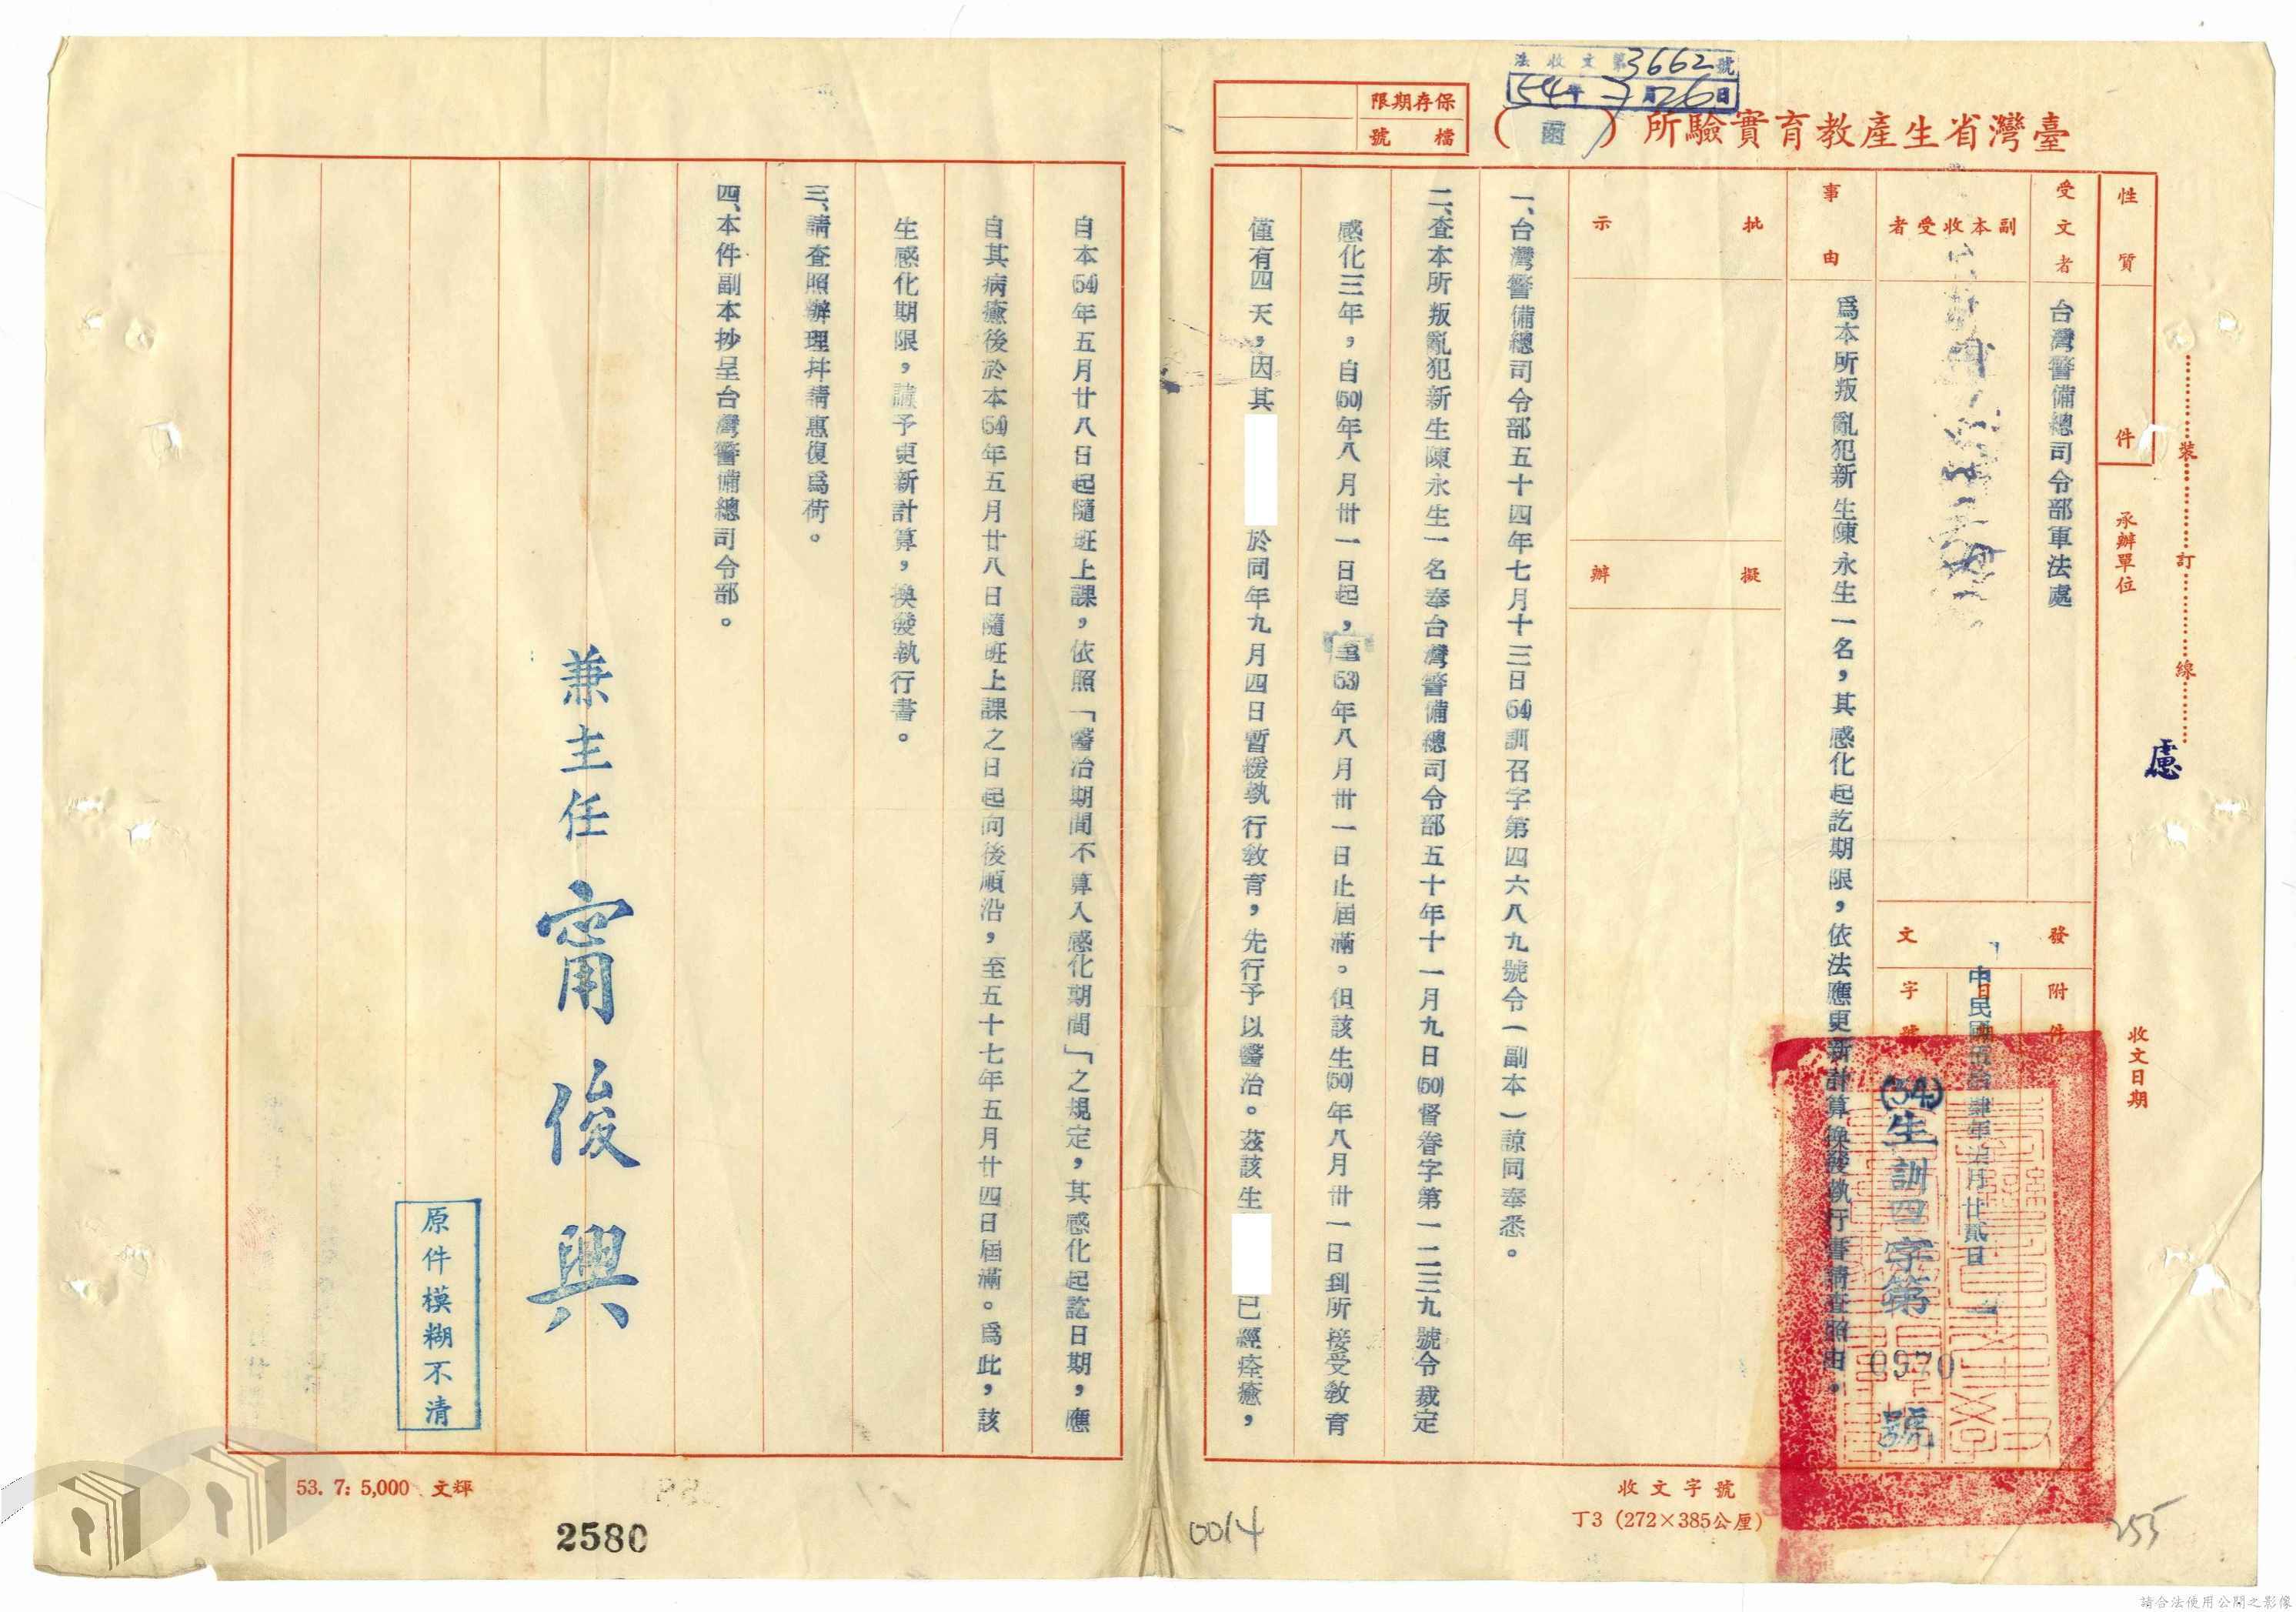 法收文第3662號
54年7月26日
保存期限
檔號
臺灣省生產教育實驗所（函）
性質
件
承辦單位
收文日期
裝
訂
線
慮
受文者
台灣警備總司令部軍法處
副本收受者
發文
附件
日
字號
中民國五拾肆年七月廿貳日
(54)生訓四字第0970號
事由
爲本所叛亂犯新生陳永生一名，其感化起訖期限，依法應更新計算換發執行書請查照由。
批示
擬辦
一、台灣警備總司令部五十四年七月十三日(54)訓召字第四六八九號令（副本）諒同奉悉。
二、查本所叛亂犯新生陳永生一名奉台灣警備總司令部五十年十一月九日(50)督眷字第一二三九號令裁定
感化三年，自(50)年八月卅一日起，至(53)年八月卅一日止屆滿。但該生(50)年八月卅一日到所接受教育
僅有四天，因其
於同年九月四日暫緩執行教育，先行予以醫治。茲該生
已經痊癒，
自本(54)年五月廿八日起隨班上課，依照「醫治期間不算入感化期間」「之規定，其感化起訖日期，應
自其病癒後於本(54)年五月廿八日隨班上課之日起向後順沿，至五十七年五月廿四日屆滿。爲此，該
生感化期限，請予更新計算，換發執行書。
三、請查照辦理并請惠復爲荷。
四、本件副本抄呈台灣警備總司令部。
兼主任 甯俊興
原件模糊不清
53. 7: 5,000 文輝
2580
0014
收文字號
丁3（272×385公厘）
255
請合法使用公開之影像